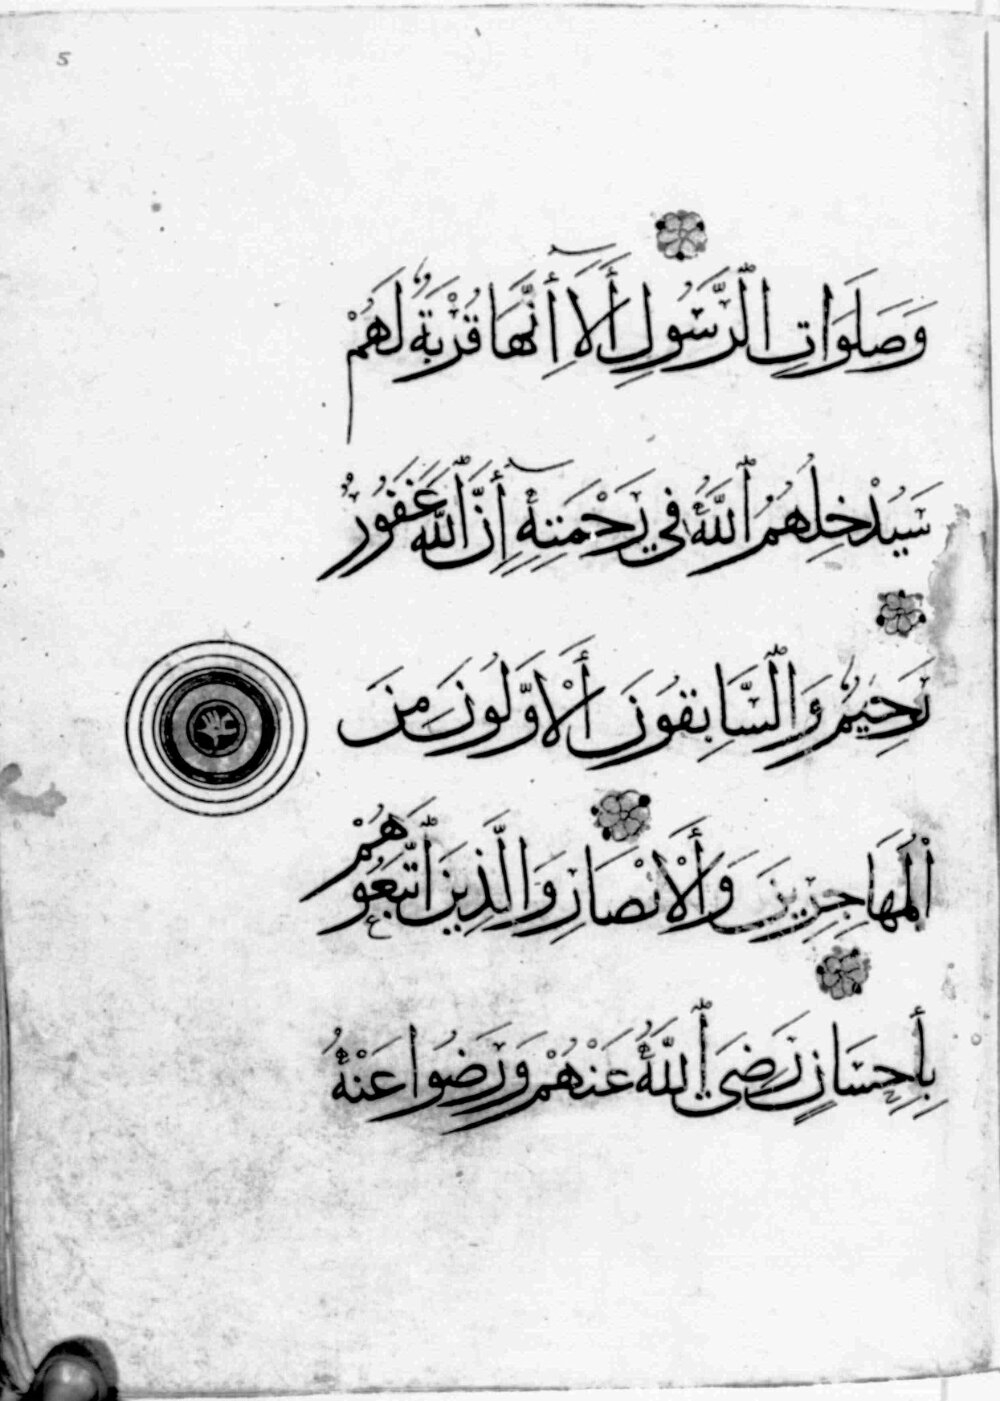 5
وَصَلَوَاتِ الرَّسُولِ أَلَآ إِنَّهَا قُرْبَةٌ لَهُمْ
سَيُدْخِلُهُمُ ٱللَّهُ فِي رَحْمَتِهِٓ إِنَّ ٱللَّهَ غَفُورٌ
رَحِيمٌ وَٱلسَّابِقُونَ ٱلْأَوَّلُونَ مِنَ
ٱلْمُهَاجِرِينَ وَٱلْأَنْصَارِ وَالَّذِينَ ٱتَّبَعُوهُمْ
بِإِحْسَانٍ رَضِيَ ٱللَّهُ عَنْهُمْ وَرَضُوا عَنْهُ